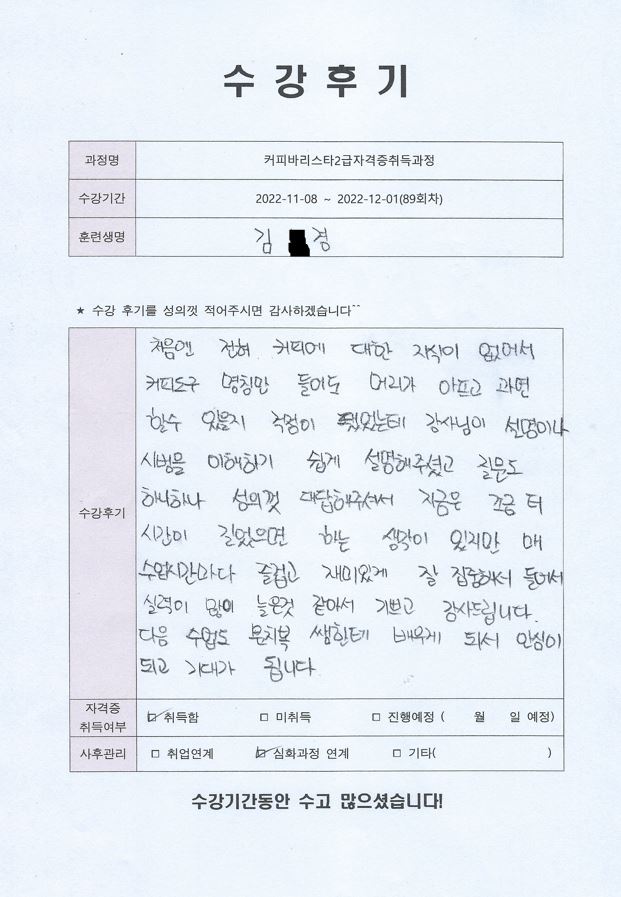 수강후기
과정명 커피바리스타2급자격증취득과정
수강기간 2022-11-08 ~ 2022-12-01(89회차)
훈련생명 김 경
★ 수강 후기를 성의껏 적어주시면 감사하겠습니다^^
수강후기
처음엔 전혀 커피에 대한 지식이 없어서
커피도구 명칭만 들어도 머리가 아프고 과연
할수 있을지 걱정이 됐었는데 강사님이 설명이나
시범을 이해하기 쉽게 설명해주셨고 질문도
하나하나 성의껏 대답해주셔서 지금은 조금 더
시간이 길었으면 하는 생각이 있지만 매
수업시간마다 즐겁고 재미있게 잘 집중해서 들어서
실력이 많이 늘은것 같아서 기쁘고 감사드립니다.
다음 수업도 문치복 쌤한테 배우게 되서 안심이
되고 기대가 됩니다.
자격증 취득여부 ☑ 취득함 □ 미취득 □ 진행예정 ( 월 일 예정)
사후관리 □ 취업연계 ☑ 심화과정 연계 □ 기타( )
수강기간동안 수고 많으셨습니다!